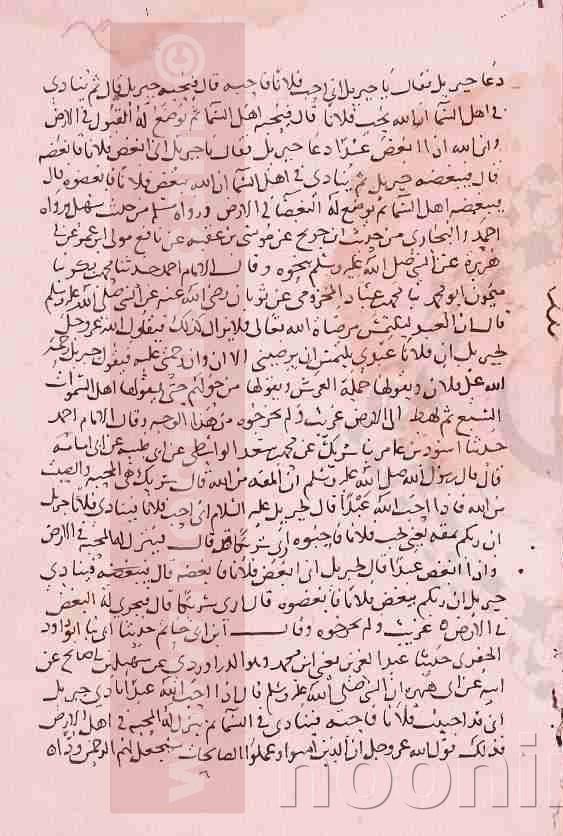 دعا جبريل فقال يا جبريل اني احب فلانا فاحبه قال فيحبه جبريل قال ثم ينادي
في اهل السما ان الله يحب فلانا قال فيحبه اهل السما ثم يوضع له القبول في الارض
وان الله اذا ابغض عبدا دعا جبريل فقال يا جبريل اني ابغض فلانا فابغضه
قال فيبغضه جبريل ثم ينادي في اهل السما ان الله يبغض فلانا فابغضوه قال
فيبغضه اهل السما ثم يوضع له البغضا في الارض ورواه مسلم من حديث سهيل ورواه
احمد والبخاري من حديث ابن جريج عن موسى بن عقبه عن نافع مولى ابن عمر عن ابي
هريرة عن النبي صلى الله عليه وسلم بنحوه وقال الامام احمد حدثنا محمد بن بكر نا
ميمون ابو محمد نا محمد بن عباد المخزومي عن ثوبان رضي الله عنه عن النبي صلى الله عليه وسلم
قال ان العبد ليلتمس مرضاة الله تعالى فلا يزال كذلك فيقول الله عز وجل
لجبريل ان فلانا عبدي يلتمس ان يرضيني الا وان رحمتي عليه فيقول جبريل رحمة
الله على فلان ويقولها حملة العرش ويقولها من حولهم حتى يقولها اهل السموات
السبع ثم يهبط الى الارض غريب ولم يخرجوه من هذا الوجه وقال الامام احمد
حدثنا اسود بن عامر نا شريك عن محمد بن سعد الواسطي عن ابي طيبه عن ابي امامة
قال قال رسول الله صلى الله عليه وسلم ان المقه من الله قال شريك هي المحبه والصيت
من الله فاذا احب الله عبدا قال لجبريل عليه السلام اني احب فلانا فينادي جبريل
ان ربكم يمقه يعني يحب فلانا فاحبوه اري شريكا قد قال فينزل له المحبة في الارض
واذا ابغض عبدا قال لجبريل اني ابغض فلانا فابغضه قال فيبغضه فينادي
جبريل ان ربكم يبغض فلانا فابغضوه قال اري شريكا قال فيجري له البغض
في الارض غريب ولم يخرجوه وقال ابن ابي حاتم حدثنا ابي نا ابو داود
الحفري حدثنا عبد العزيز يعني ابن محمد وهو الدراوردي عن سهيل بن ابي صالح عن
ابيه عن ابي هريرة ان النبي صلى الله عليه وسلم قال اذا احب الله عبدا نادي جبريل
اني قد احببت فلانا فاحبه فينادي في السما ثم ينزل له المحبة في اهل الارض
فذلك قول الله عز وجل ان الذين امنوا وعملوا الصالحات سيجعل لهم الرحمن ودا
nooni